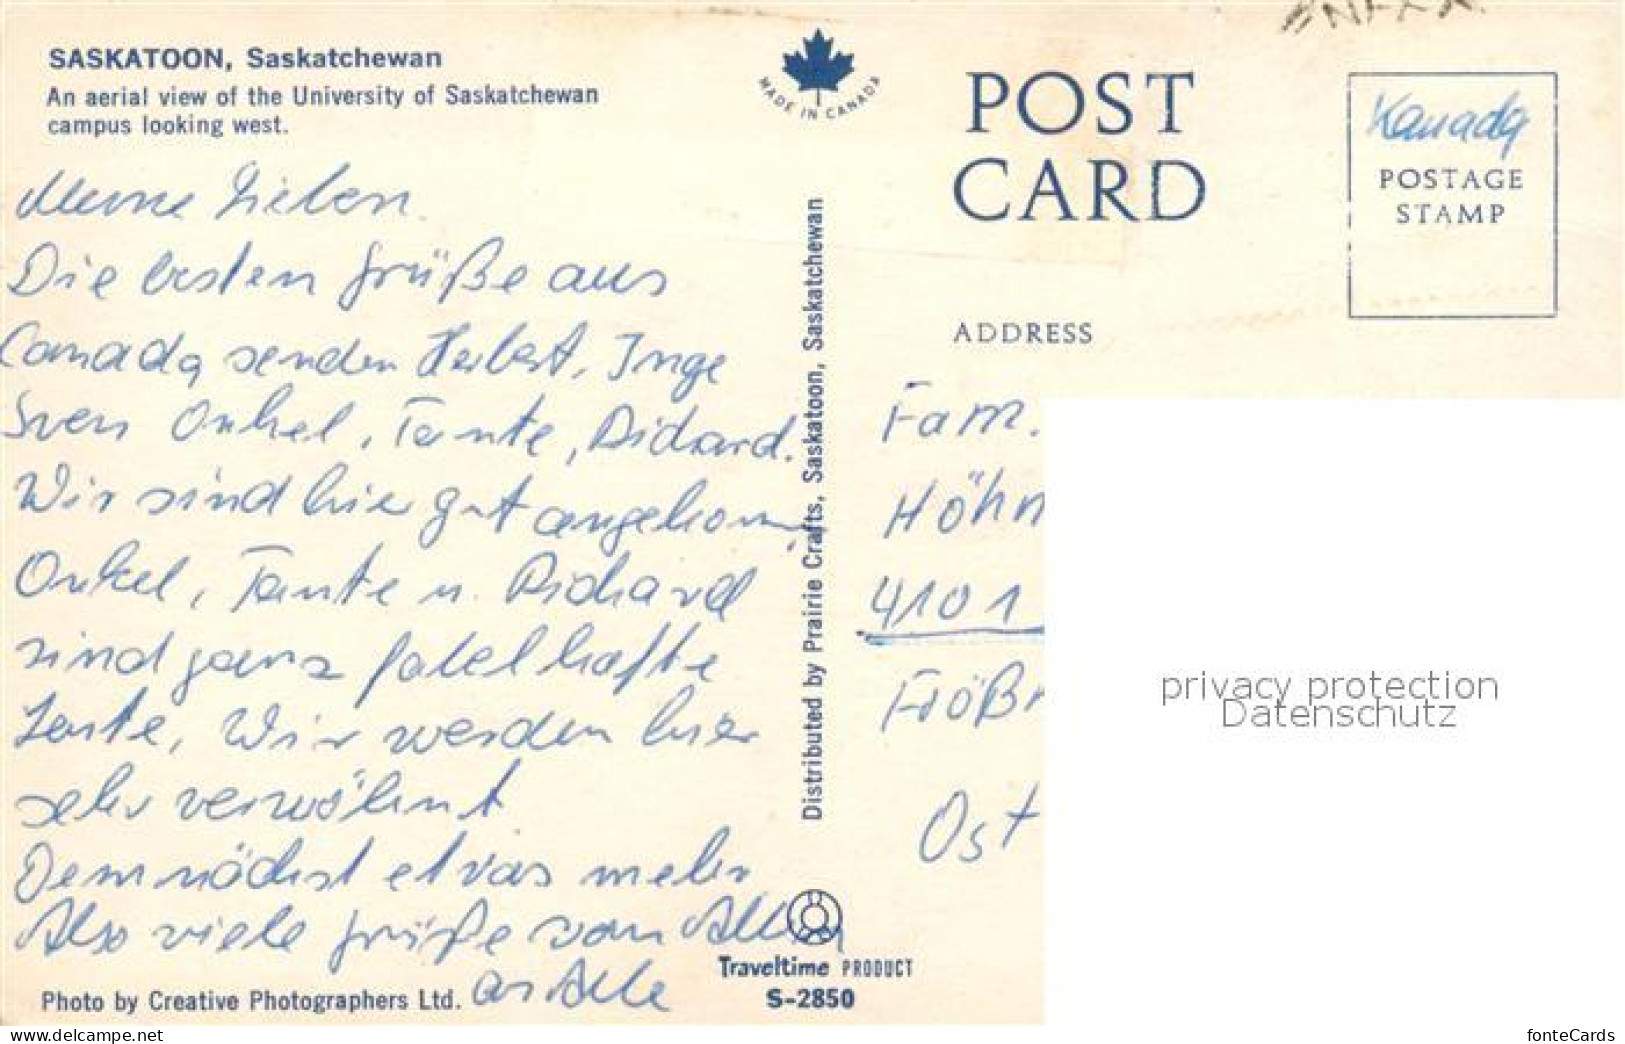 SASKATOON, Saskatchewan
An aerial view of the University of Saskatchewan
campus looking west.
MADE IN CANADA
POST
CARD
Kanada
POSTAGE
STAMP
ADDRESS
Meine Lieben.
Die besten Grüße aus
Canada senden Herbert, Inge
Sven Onkel, Tante, Richard.
Wir sind hier gut angekomm.
Onkel, Tante u. Richard
sind ganz fabelhafte
Leute, Wir werden hier
sehr verwöhnt
Demnächst etwas mehr
Also viele Grüße von Allen
an Alle
Distributed by Prairie Crafts, Saskatoon, Saskatchewan
Fam.
Höhn
4101
Ost
privacy protection
Datenschutz
Traveltime PRODUCT
S-2850
Photo by Creative Photographers Ltd.
See More at www.ansichtskarten-center.de
fonteCards